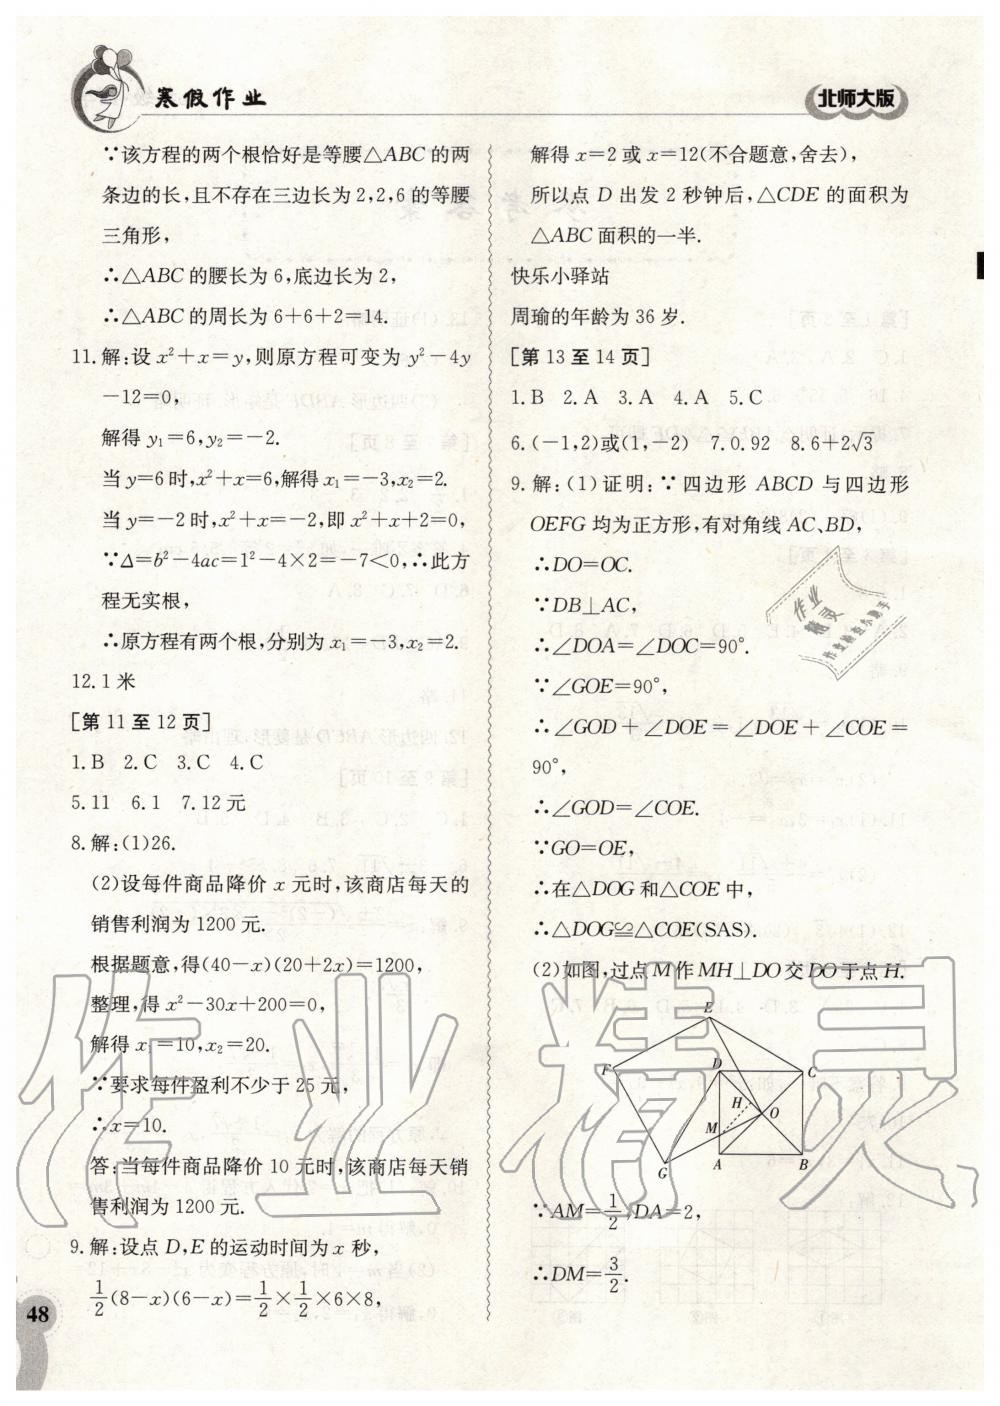 寒假作业
北师大版
∵该方程的两个根恰好是等腰△ABC的两
条边的长,且不存在三边长为2,2,6的等腰
三角形,
∴△ABC的腰长为6,底边长为2,
∴△ABC的周长为6+6+2=14.
11.解:设x²+x=y,则原方程可变为y²-4y
-12=0,
解得y₁=6,y₂=-2.
当y=6时,x²+x=6,解得x₁=-3,x₂=2.
当y=-2时,x²+x=-2,即x²+x+2=0,
∵Δ=b²-4ac=1²-4×2=-7<0,∴此方
程无实根,
∴原方程有两个根,分别为x₁=-3,x₂=2.
12.1米
[第11至12页]
1.B 2.C 3.C 4.C
5.11 6.1 7.12元
8.解:(1)26.
(2)设每件商品降价x元时,该商店每天的
销售利润为1200元.
根据题意,得(40-x)(20+2x)=1200,
整理,得x²-30x+200=0,
解得x₁=10,x₂=20.
∵要求每件盈利不少于25元,
∴x=10.
答:当每件商品降价10元时,该商店每天销
售利润为1200元.
9.解:设点D,E的运动时间为x秒,
1/2(8-x)(6-x)=1/2×1/2×6×8,
48
解得x=2或x=12(不合题意,舍去),
所以点D出发2秒钟后,△CDE的面积为
△ABC面积的一半.
快乐小驿站
周瑜的年龄为36岁.
[第13至14页]
1.B 2.A 3.A 4.A 5.C
6.(-1,2)或(1,-2) 7.0.92 8.6+2√3
9.解:(1)证明:∵四边形ABCD与四边形
OEFG均为正方形,有对角线AC、BD,
∴DO=OC.
∵DB⊥AC,
∴∠DOA=∠DOC=90°.
∵∠GOE=90°,
∴∠GOD+∠DOE=∠DOE+∠COE=
90°,
∴∠GOD=∠COE.
∵GO=OE,
∴在△DOG和△COE中,
∴△DOG≌△COE(SAS).
(2)如图,过点M作MH⊥DO交DO于点H.
E
F
D
C
H
O
M
G
A
B
∵AM=1/2,DA=2,
∴DM=3/2.
作业
精灵
作业检查小助手
作业精灵